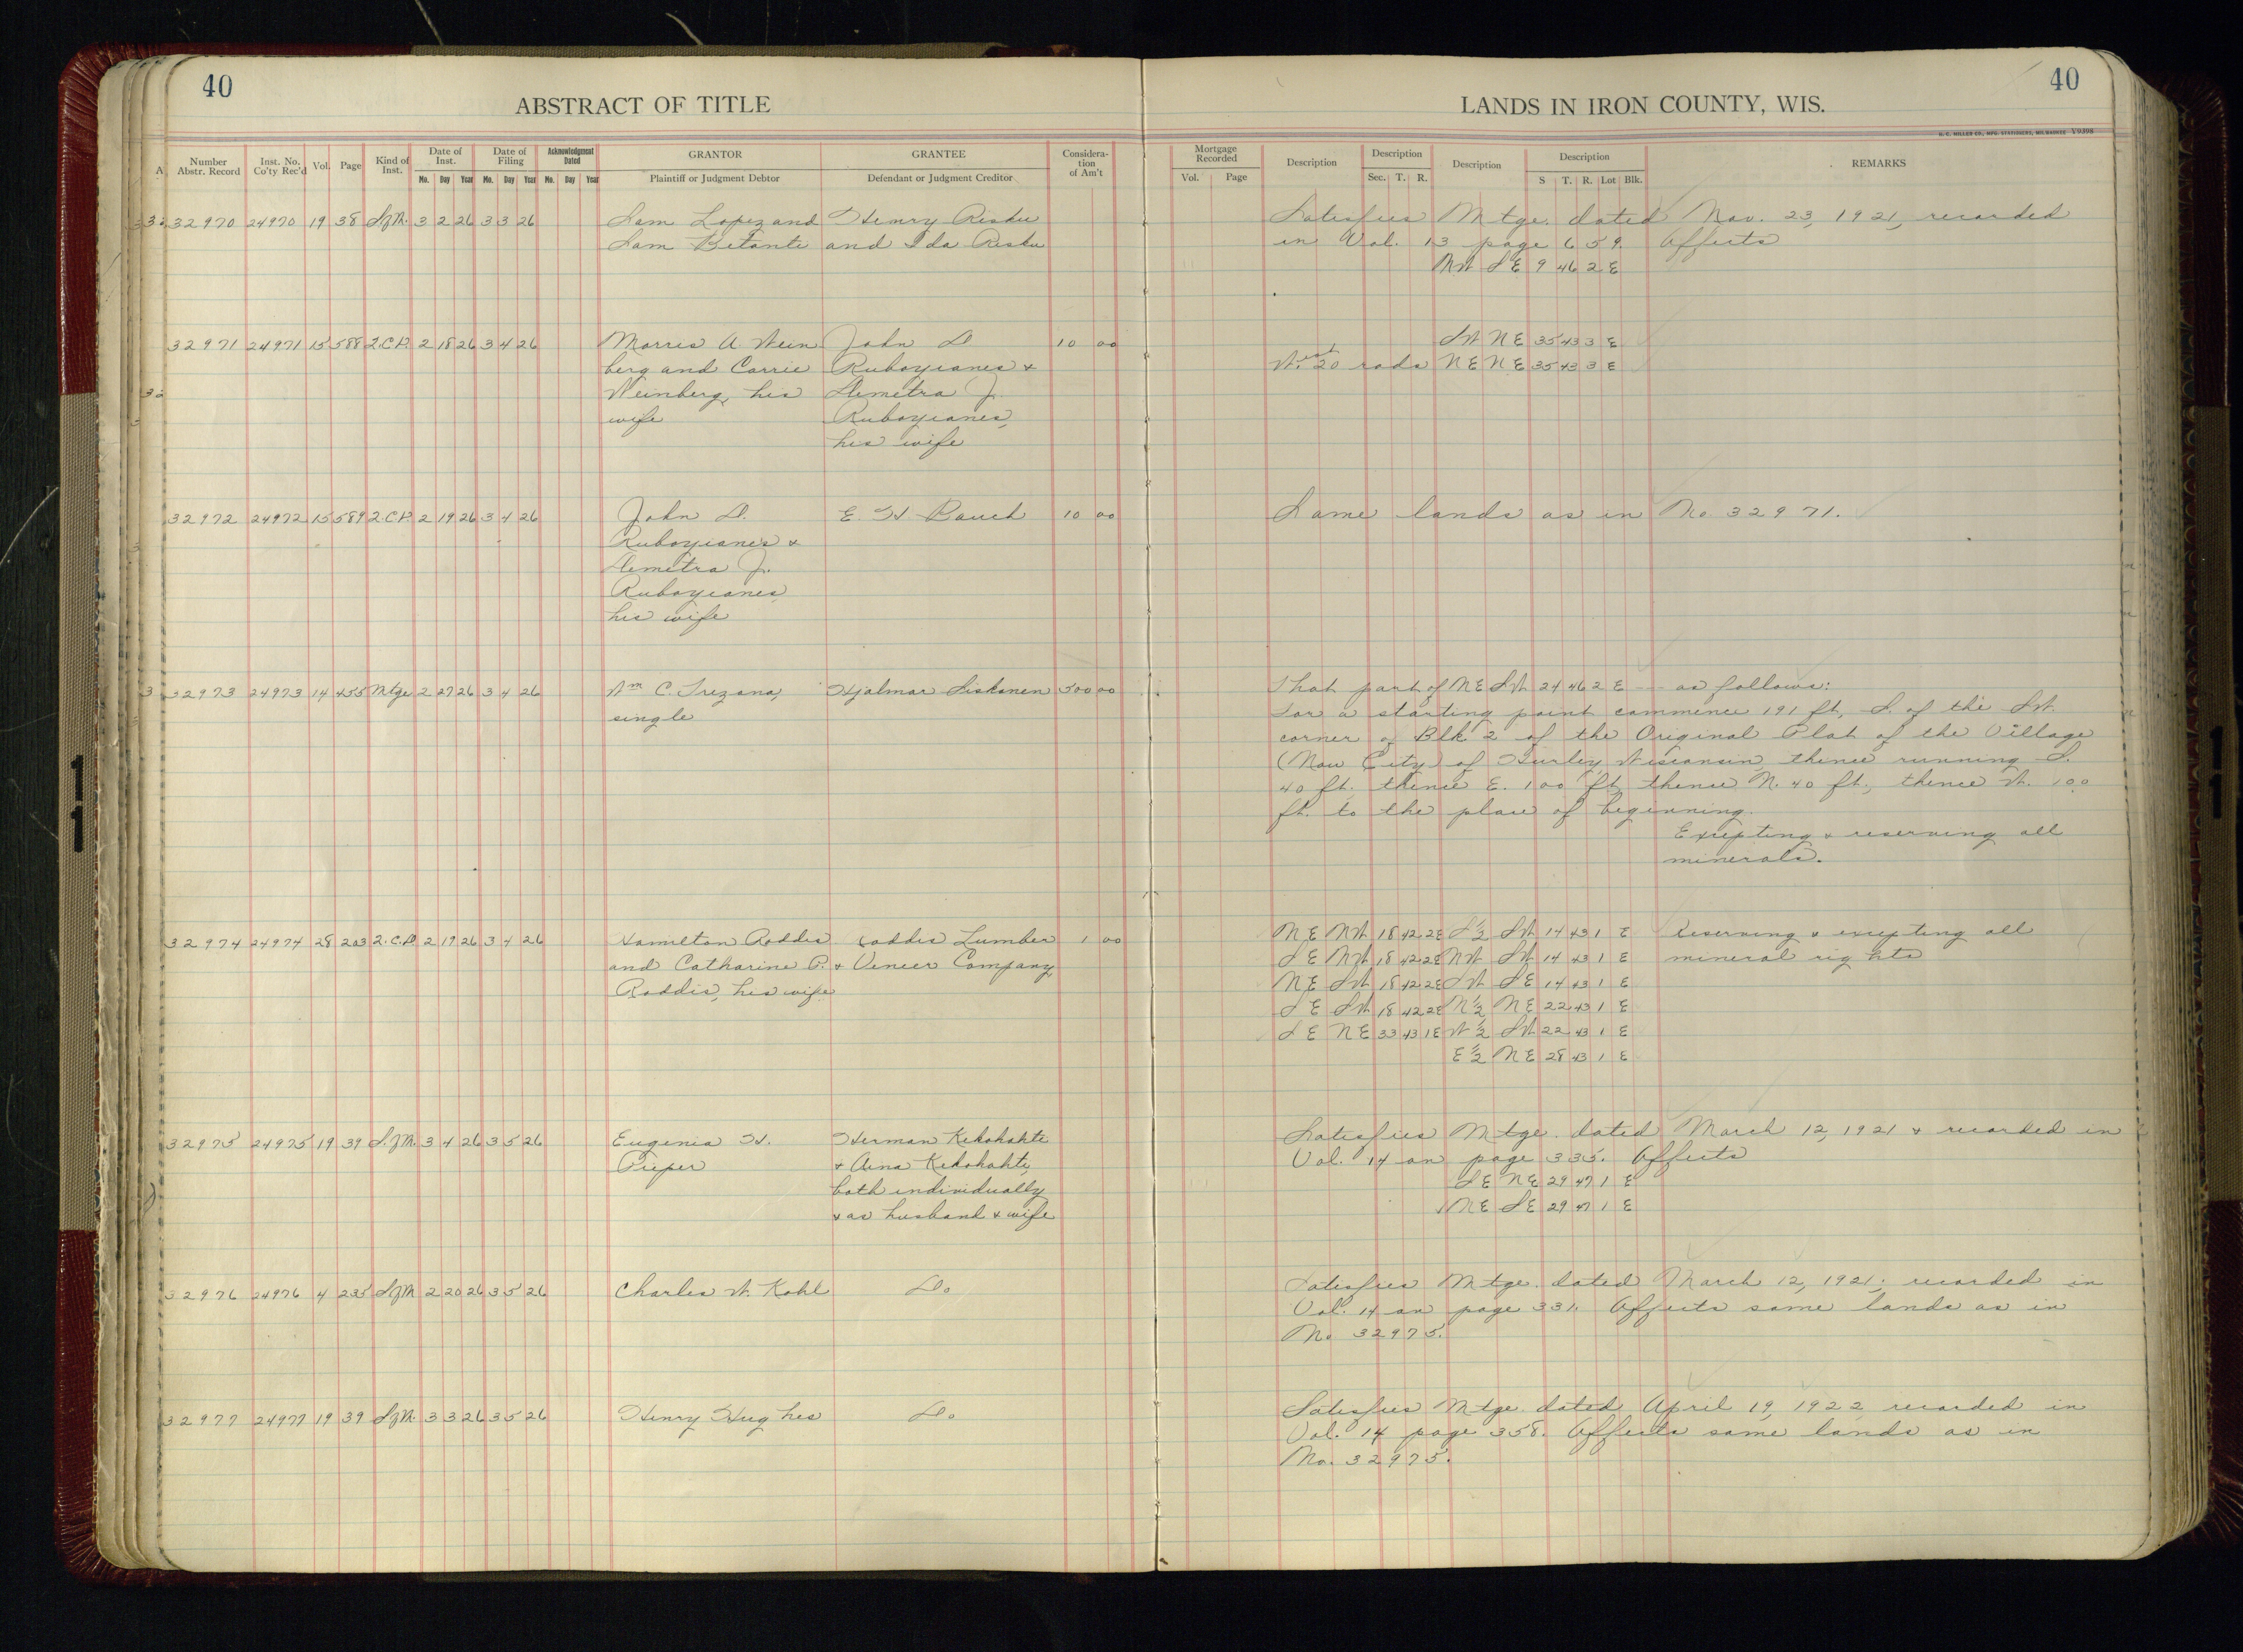 40
ABSTRACT OF TITLE
LANDS IN IRON COUNTY, WIS.
40
H. C. MILLER CO., MFG. STATIONERS, MILWAUKEE Y9398
Number Abstr. Record | Inst. No. Co'ty Rec'd | Vol. | Page | Kind of Inst. | Date of Inst. Mo. Day Year | Date of Filing Mo. Day Year | Acknowledgment Dated Mo. Day Year | GRANTOR Plaintiff or Judgment Debtor | GRANTEE Defendant or Judgment Creditor | Considera-tion of Am't | Mortgage Recorded Vol. Page | Description | Description Sec. T. R. | Description | Description S T. R. Lot Blk. | REMARKS
32970 24970 19 38 S.of M. 3 2 26 3 3 26 Sam Lopez and Henry Risku Satisfies Mtge. dated Nov. 23, 1921, recorded
Sam Betante and Ida Risku in Vol. 13 page 659. Affects
NW SE 9 46 2 E
32971 24971 15 588 2.C.D. 2 18 26 3 4 26 Morris A. Wein John D. 10 00 SW NE 35 43 3 E
berg and Carrie Ruboyianes & West 20 rods NE NE 35 43 3 E
Weinberg, his Demetra J.
wife Ruboyianes,
his wife
32972 24972 15 589 2.C.D. 2 19 26 3 4 26 John D. E. H. Bauch 10 00 Same lands as in No. 32971.
Ruboyianes &
Demetra J.
Ruboyianes,
his wife
32973 24973 14 455 Mtge 2 27 26 3 4 26 Wm C. Trezona, Hjalmar Siskonen 500 00 That part of NE SW 24 46 2 E --- as follows:
single For a starting point commence 191 ft. S. of the SW.
corner of Blk 2 of the Original Plat of the Village
(Now City) of Hurley Wisconsin, thence running S.
40 ft. thence E. 100 ft, thence N. 40 ft., thence W. 100
ft. to the place of beginning.
Excepting & reserving all
minerals.
32974 24974 28 203 2.C.D. 2 17 26 3 4 26 Hamilton Roddis Roddis Lumber 1 00 NE NW 18 42 2E S½ SW 14 43 1 E Reserving & excepting all
and Catharine P. & Veneer Company SE NW 18 42 2E NW SW 14 43 1 E mineral rights
Roddis, his wife NE SW 18 42 2E SW SE 14 43 1 E
SE SW 18 42 2E N½ NE 22 43 1 E
SE NE 33 43 1E W½ SW 22 43 1 E
E½ NE 28 43 1 E
32975 24975 19 39 S.of M. 3 4 26 3 5 26 Eugenia H. Herman Kekohahti Satisfies Mtge. dated March 12, 1921 & recorded in
Pieper & Aina Kekohahti, Vol. 14 on page 335. Affects
both individually SE NE 29 47 1 E
& as husband & wife NE SE 29 47 1 E
32976 24976 4 235 S of M 2 20 26 3 5 26 Charles W. Kohl Do Satisfies Mtge. dated March 12, 1921, recorded in
Vol. 14 on page 331. Affects same lands as in
No 32975.
32977 24977 19 39 S of M. 3 3 26 3 5 26 Henry Hughes Do Satisfies Mtge. dated April 19, 1922 recorded in
Vol. 14 page 358. Affects same lands as in
No. 32975.